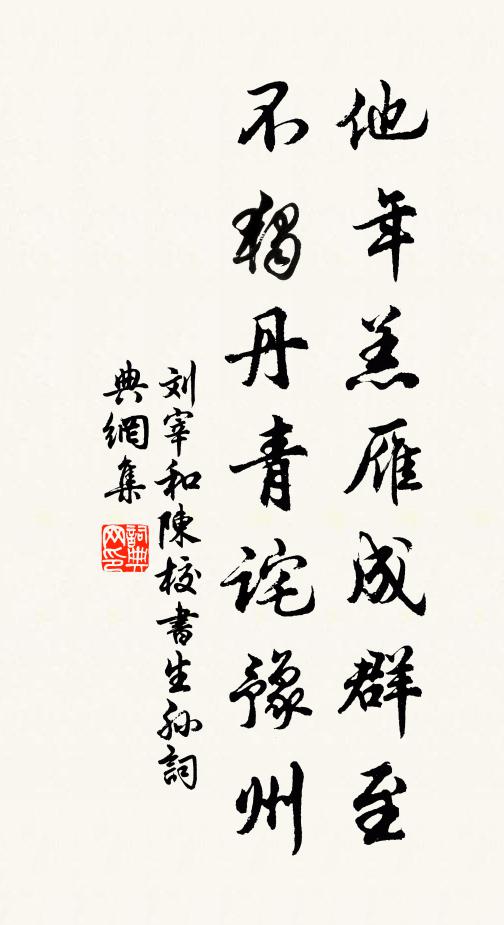 他年羔雁成群至
不独丹青詫豫州
刘宰和陳校書生孙詞
典網集
詞典网印